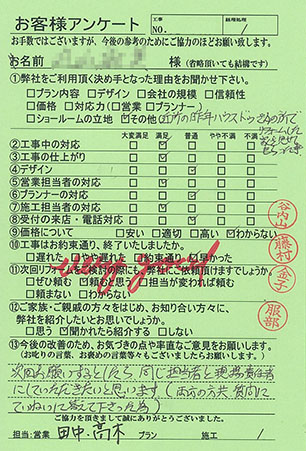 お客様アンケート
工事NO.
経理処理 /
お手数ではございますが、今後の参考のためにご協力のほどお願い致します。
お名前 様(省略頂いても結構です)
①弊社をご利用頂く決め手となった理由をお聞かせ下さい。
□プラン内容 □デザイン □会社の規模 □信頼性
□価格 □対応力(□営業 □プランナー)
□ショールームの立地 ☑その他
大変満足 満足 普通 やや不満 不満
②工事中の対応 □ ☑ □ □ □
③工事の仕上がり
④デザイン
⑤営業担当者の対応
⑥プランナーの対応
⑦施工担当者の対応
⑧受付の来店・電話対応
⑨価格について □安い □適切 □高い ☑わからない
⑩工事はお約束通り、終了いたしましたか。
□遅れた □やや遅れた □約束通り □早かった
very good
⑪次回リフォームご検討の際にも、弊社にご依頼頂けますでしょうか。
□ぜひ頼む ☑頼むと思う □担当が変われば頼む
□頼まない □わからない
⑫ご家族・ご親戚の方々をはじめ、お知り合い方々に、
弊社を紹介したいとお思いでしょうか。
□思う ☑聞かれたら紹介する □しない
⑬今後の改善のため、お気づきの点や率直なご意見をお願いします。
(お叱りの言葉、お褒めの言葉等々もございましたらお願いします。)
次回お願いするとしたら同じ担当者と現場責任者
にしていただきたいと思います
ていねいに答えて下さった為)
ご協力を頂きまして誠にありがとうございました。
担当:営業 田中・高木 プラン 施工 /
谷内山
藤村
金子
服部